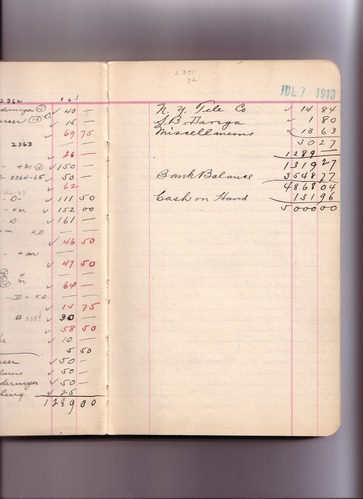 2362
✓ 40 —
✓ 15 —
✓ 69 75
2363
✓ 26 —
✓ 150 —
D- 2364-65 ✓ 50 —
✓ 62
-D- ✓ 111 50
✓ 152 00
-D- ✓ 161 —
✓ 46 50
✓ 47 50
✓ 64 —
✓ 14 75
D ✓ 90 —
✓ 58 50
✓ 10 —
5 50
✓ 50 —
✓ 50 —
✓ 50 —
✓ 25 —
1289 00
2371
72
JUL 7 1913
N. Y. Tele Co ✓ 14 84
✓ 1 80
Miscellaneous ✓ 13 63
30 27
1289 —
1319 27
Bank Balance 3548 77
4868 04
Cash on Hand 131 96
5000 00